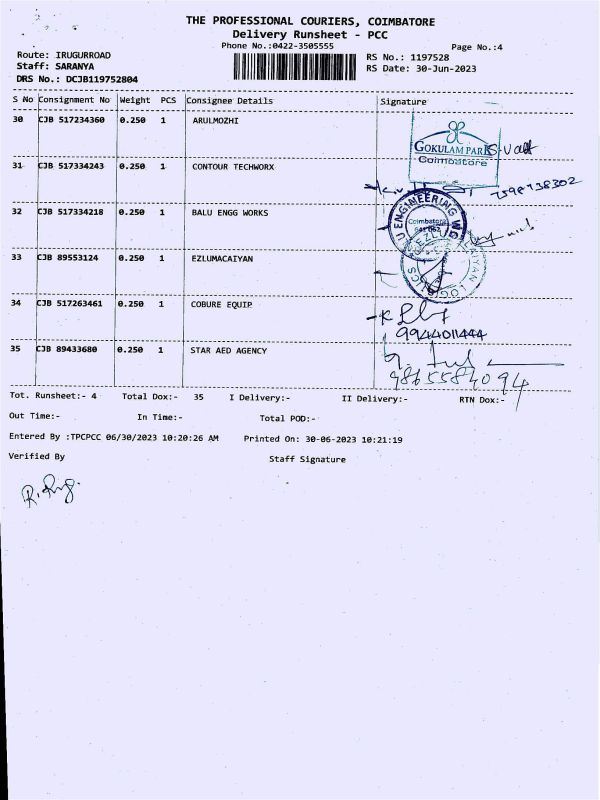 THE PROFESSIONAL COURIERS, COIMBATORE
Delivery Runsheet - PCC
Phone No.:0422-3505555
Page No.:4
Route: IRUGURROAD
RS No.: 1197528
Staff: SARANYA
RS Date: 30-Jun-2023
DRS No.: DCJB119752804
S No Consignment No Weight PCS Consignee Details Signature
30 CJB 517234360 0.250 1 ARULMOZHI
GOKULAM PARK
Coimbatore
31 CJB 517334243 0.250 1 CONTOUR TECHWORX
7598738302
32 CJB 517334218 0.250 1 BALU ENGG WORKS
ENGINEERING
Coimbatore
33 CJB 89553124 0.250 1 EZLUMACAIYAN
34 CJB 517263461 0.250 1 COBURE EQUIP
9944011444
35 CJB 89433680 0.250 1 STAR AED AGENCY
9865584094
Tot. Runsheet:- 4 Total Dox:- 35 I Delivery:- II Delivery:- RTN Dox:-
Out Time:- In Time:- Total POD:-
Entered By :TPCPCC 06/30/2023 10:20:26 AM Printed On: 30-06-2023 10:21:19
Verified By Staff Signature